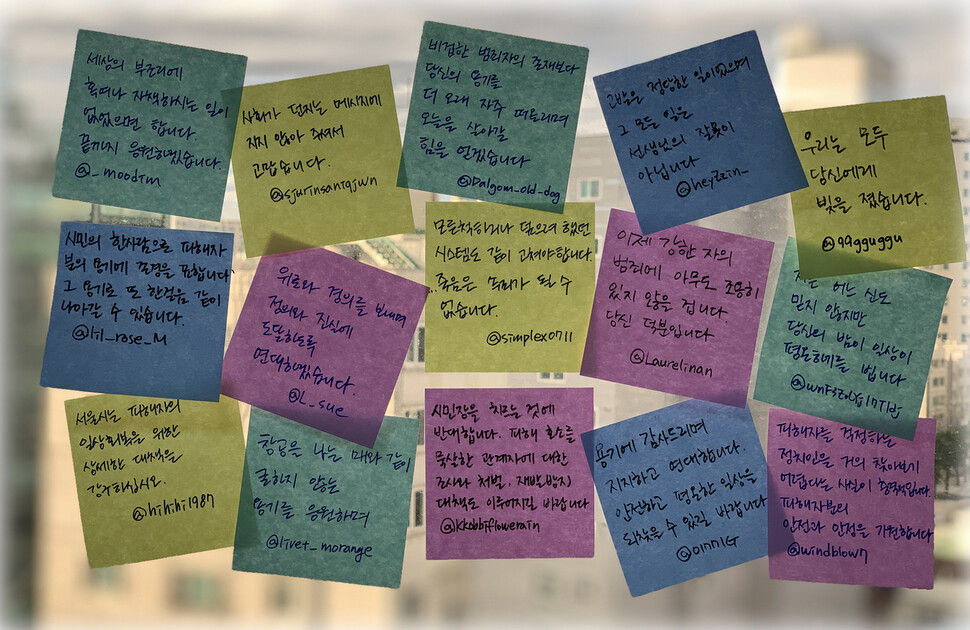 세상의 부조리에
혹여나 자책하시는 일이
없었으면 합니다.
끝까지 응원하겠습니다.
@_moodtm
사회가 던지는 메시지에
지지 않아 주셔서
고맙습니다.
@sjurinsantqjwn
비겁한 범죄자의 존재보다
당신의 용기를
더 오래 자주 떠올리며
오늘을 살아갈
힘을 얻겠습니다
@Dalgom_old_dog
고발은 정당한 일이었으며
그 모든 일은
선생님의 잘못이
아닙니다
@heyzzin_
우리는 모두
당신에게
빚을 졌습니다.
@99gguggu
시민의 한사람으로 피해자
분의 용기에 존경을 표합니다
그 용기로 또 한걸음 같이
나아갈 수 있습니다.
@lil_rose_M
위로와 경의를 보내며
정의와 진실에
도달하도록
연대하겠습니다.
@L_sue
모른척하거나 덮으려 했던
시스템도 같이 고쳐야합니다.
죽음은 속죄가 될 수
없습니다.
@simplex0711
이제 강한 자의
범죄에 아무도 조용히
있지 않을 겁니다.
당신 덕분입니다
@Laurelinan
저는 어느 신도
믿지 않지만
당신의 밤이 일상이
평온하기를 빕니다
서울시는 피해자의
일상회복을 위한
상세한 대책을
강구하십시오.
@hihihi1987
창공을 나는 매와 같이
굴하지 않는
용기를 응원하며
@livet_morange
시민장을 치르는 것에
반대합니다. 피해 호소를
묵살한 관계자에 대한
조사와 처벌, 재발방지
대책도 이루어지길 바랍니다
@kkobbiflowerain
용기에 감사드리며
지지하고 연대합니다.
안전하고 평온한 일상을
되찾을 수 있길 바랍니다
@OINNIG
피해자를 걱정하는
정치인을 거의 찾아보기
어렵다는 사실이 충격적입니다.
피해자분의
안전과 안정을 기원합니다
@windblown